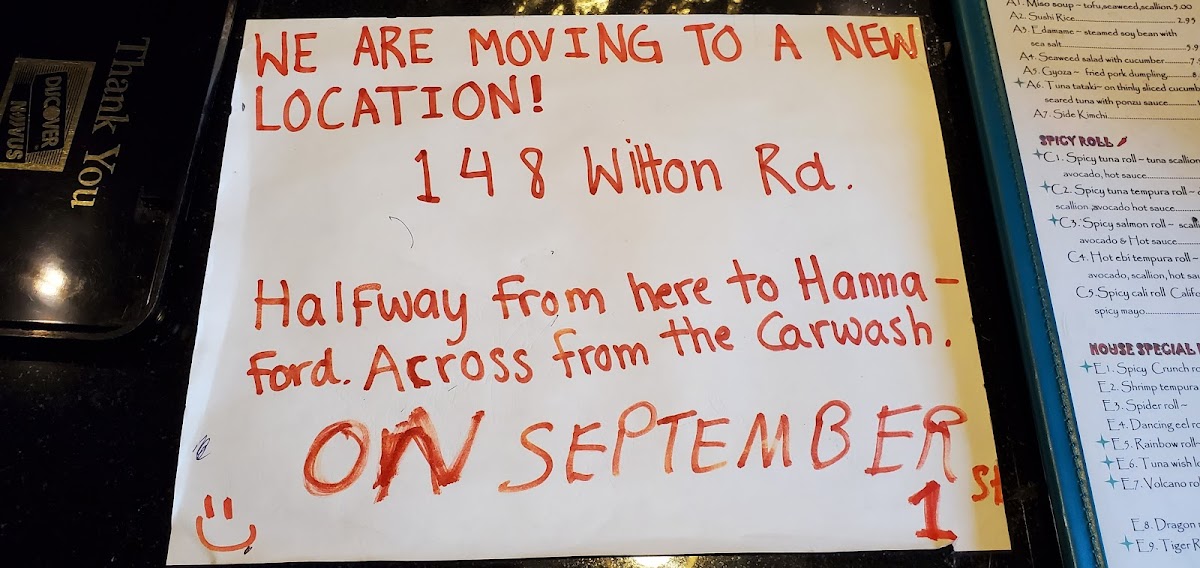 WE ARE MOVING TO A NEW
LOCATION!
148 Wilton Rd.
Halfway from here to Hanna-
ford. Across from the Carwash.
ON SEPTEMBER
1 st
Thank You
DISCOVER
NOVUS
A1. Miso soup ~ tofu,seaweed,scallion.5.00
A2. Sushi Rice 2.95
A3. Edamame ~ steamed soy bean with
sea salt
A4. Seaweed salad with cucumber
A5. Gyoza ~ fried pork dumpling
A6. Tuna tataki~ on thinly sliced
seared tuna with ponzu sauce
A7. Side Kimchi
SPICY ROLL
C1. Spicy tuna roll ~ tuna scallion
avocado, hot sauce
C2. Spicy tuna tempura roll ~
scallion ,avocado hot sauce
C3. Spicy salmon roll ~
avocado & Hot sauce
C4. Hot ebi tempura roll ~
avocado, scallion, hot
C5. Spicy cali roll
spicy mayo
HOUSE SPECIAL
E1. Spicy Crunch
E2. Shrimp tempura
E3. Spider roll ~
E4. Dancing eel
E5. Rainbow roll~
E6. Tuna wish
E7. Volcano
E8. Dragon
E9. Tiger